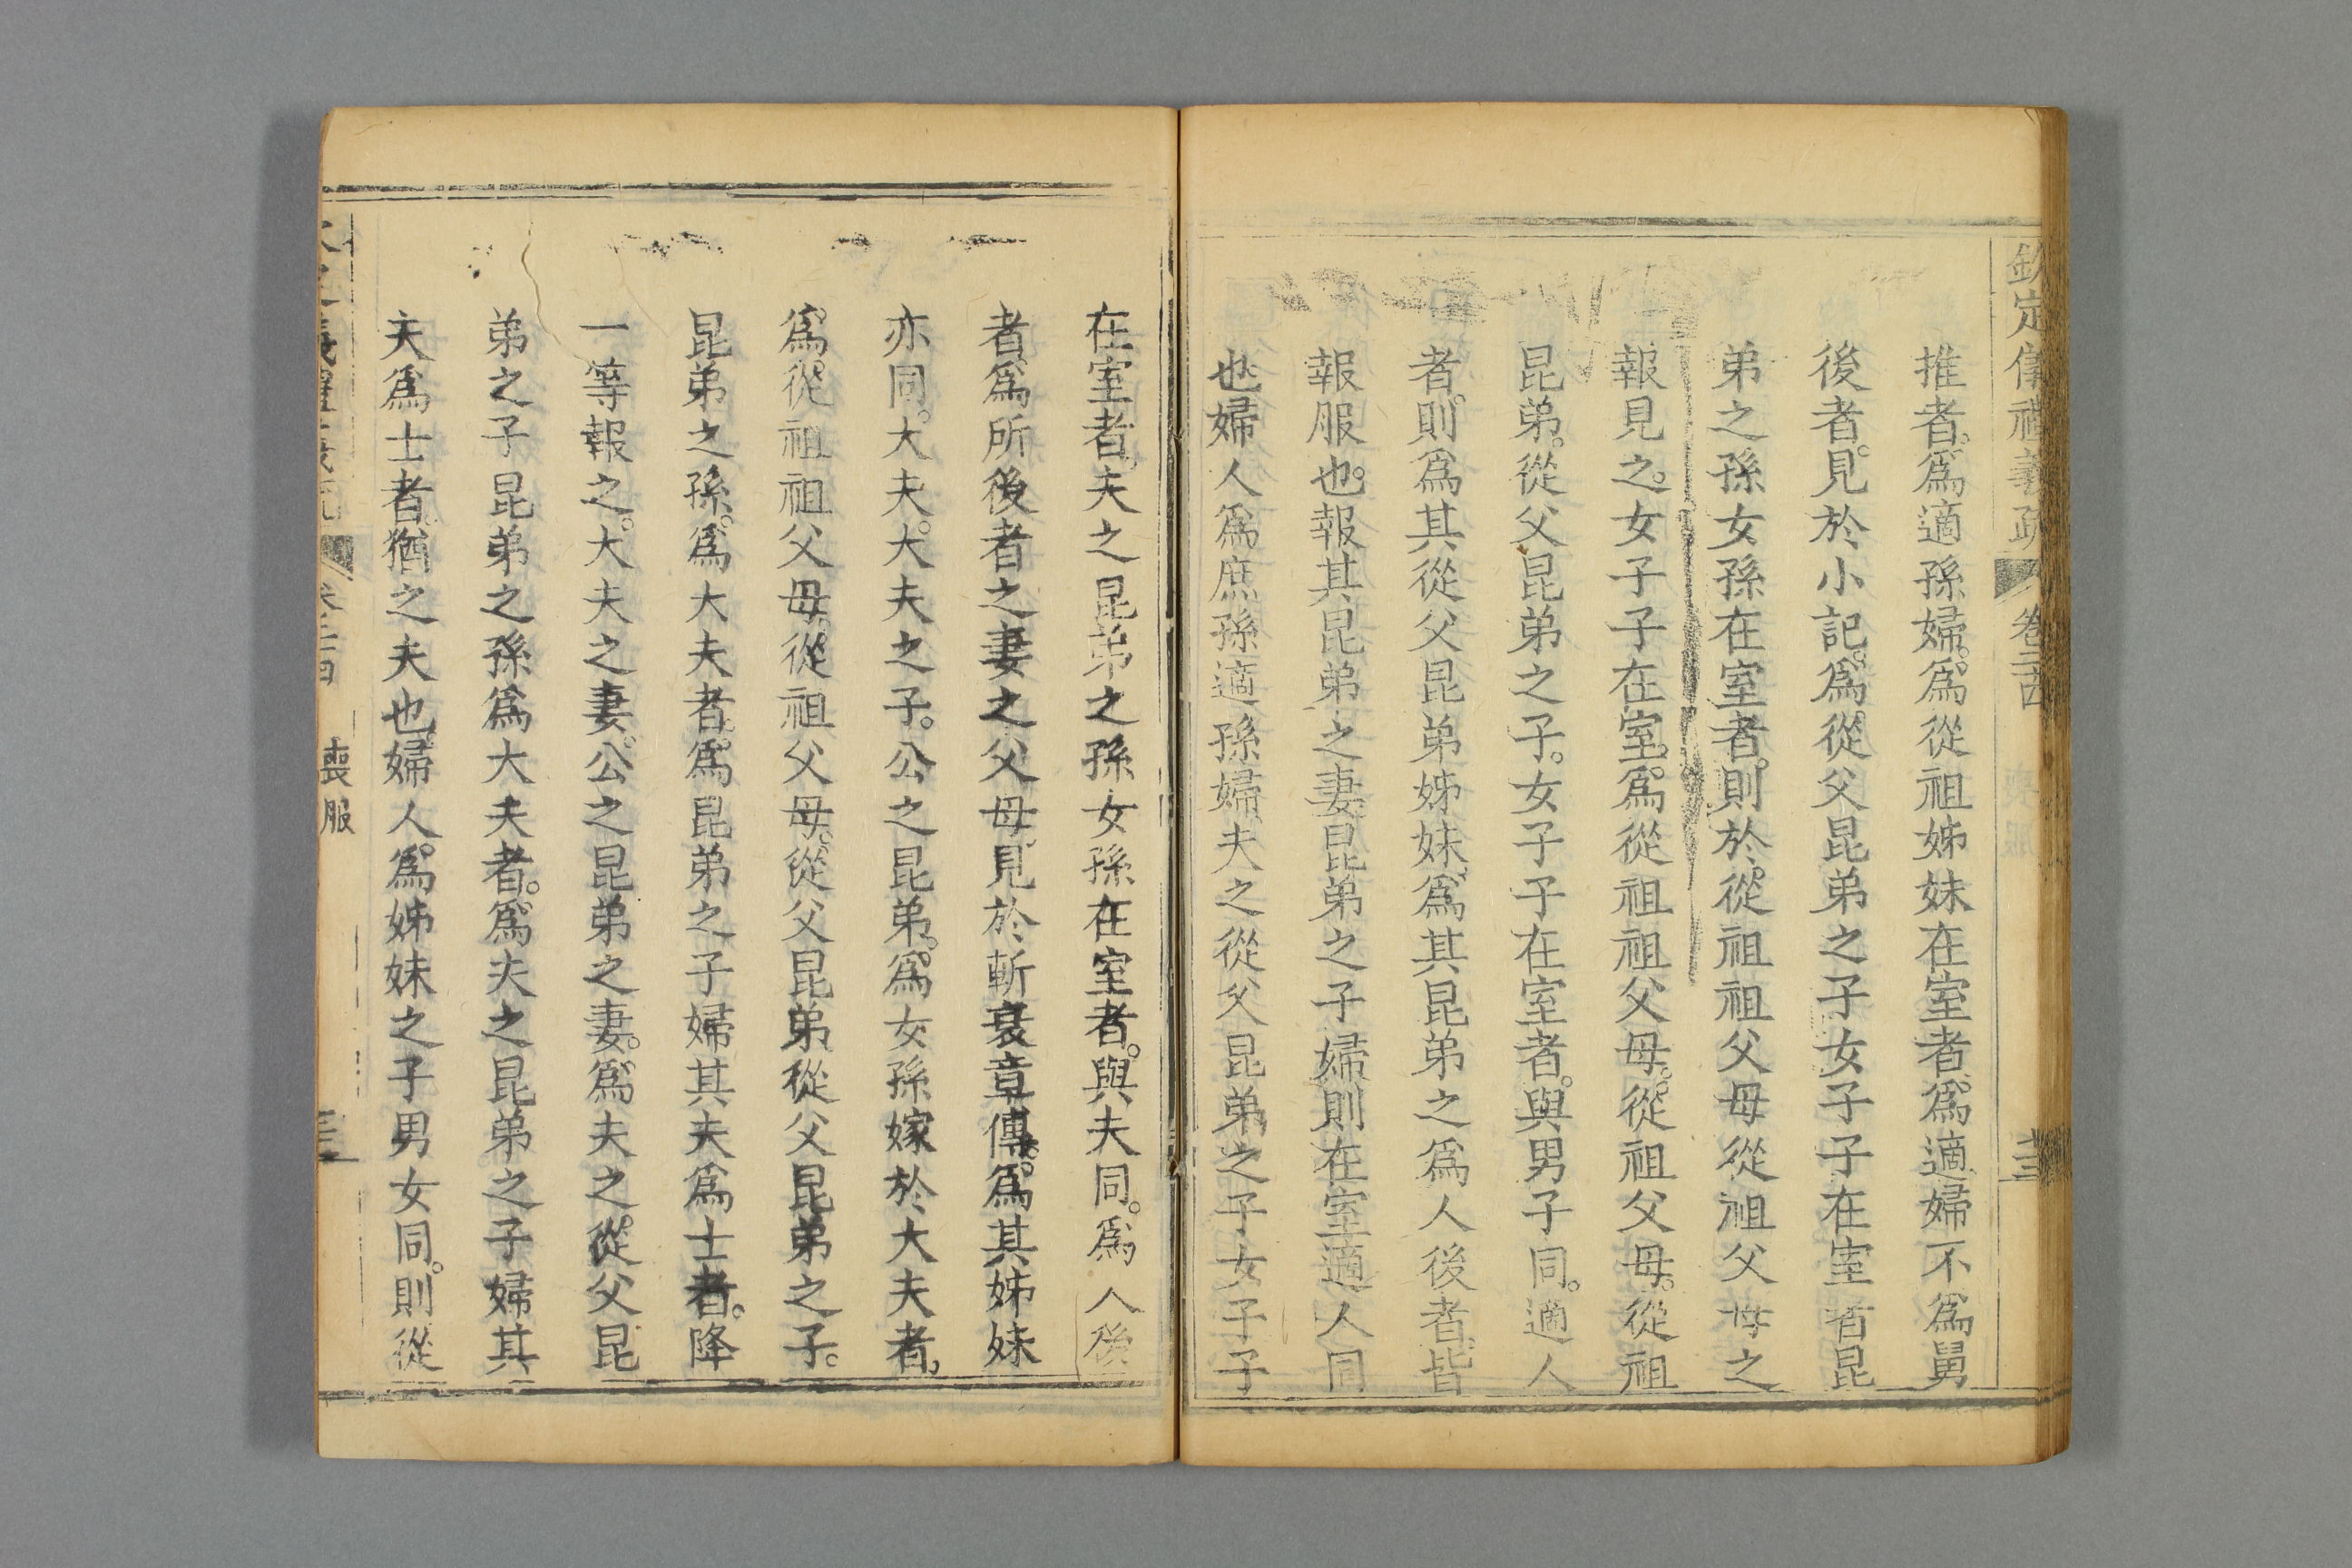 欽定儀禮義疏 卷二十四
推者。爲適孫婦。爲從祖姊妹在室者。爲適婦不爲舅
後者。見於小記。爲從父昆弟之子女子子在室者昆
弟之孫女孫在室者。則於從祖祖父母從祖父母之
報見之。女子子在室。爲從祖祖父母。從祖父母。從祖
昆弟。從父昆弟之子。女子子在室者。與男子同。適人
者。則爲其從父昆弟姊妹。爲其昆弟之爲人後者。皆
報服也。報其昆弟之妻昆弟之子婦則在室適人同
也婦人爲庶孫適孫婦夫之從父昆弟之子女子子
在室者。夫之昆弟之孫女孫在室者。與夫同。爲人後
者。爲所後者之妻之父母。見於斬衰章傳。爲其姊妹
亦同。大夫。大夫之子。公之昆弟。爲女孫嫁於大夫者,
爲。從祖祖父母。從祖父母。從父昆弟從父昆弟之子。
昆弟之孫。爲大夫者。爲昆弟之子婦其夫爲士者。降
一等報之。大夫之妻。公之昆弟之妻。爲夫之從父昆
弟之子昆弟之孫爲大夫者。爲夫之昆弟之子婦其
夫爲士者。猶之夫也。婦人。爲姊妹之子男女同。則從
喪服